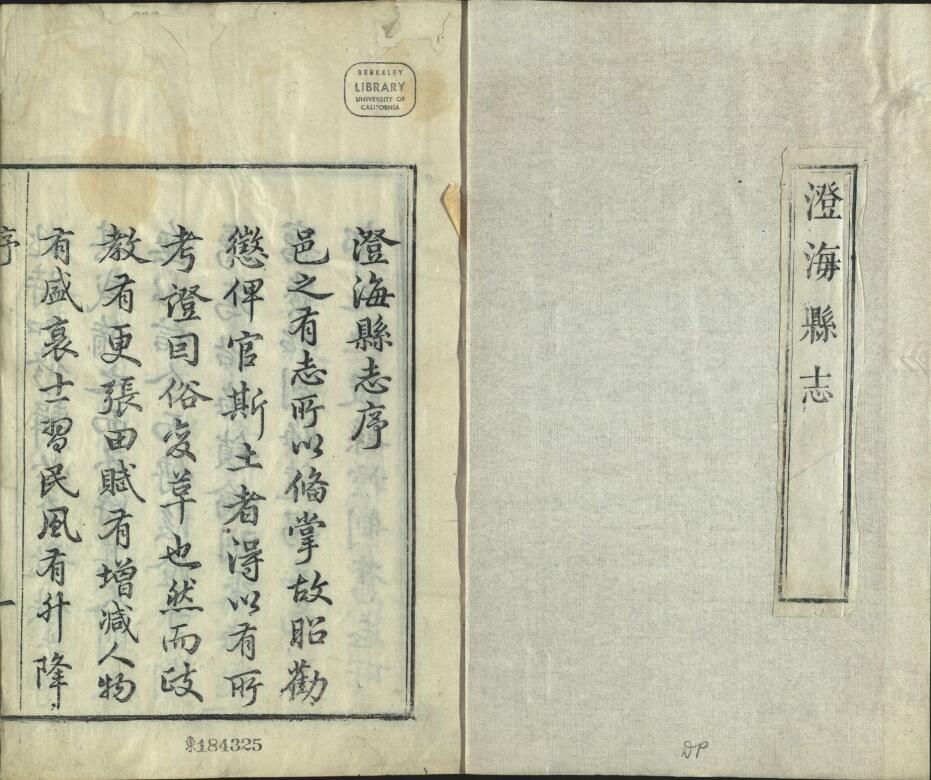 澄海縣志
澄海縣志序
邑之有志所以俻掌故昭勸
懲俾官斯土者得以有所
考證囙俗変革也然而政
教有更張田賦有增減人物
有盛衰士習民風有升降
序
一
BERKELEY
LIBRARY
UNIVERSITY OF
CALIFORNIA
東184325
DP